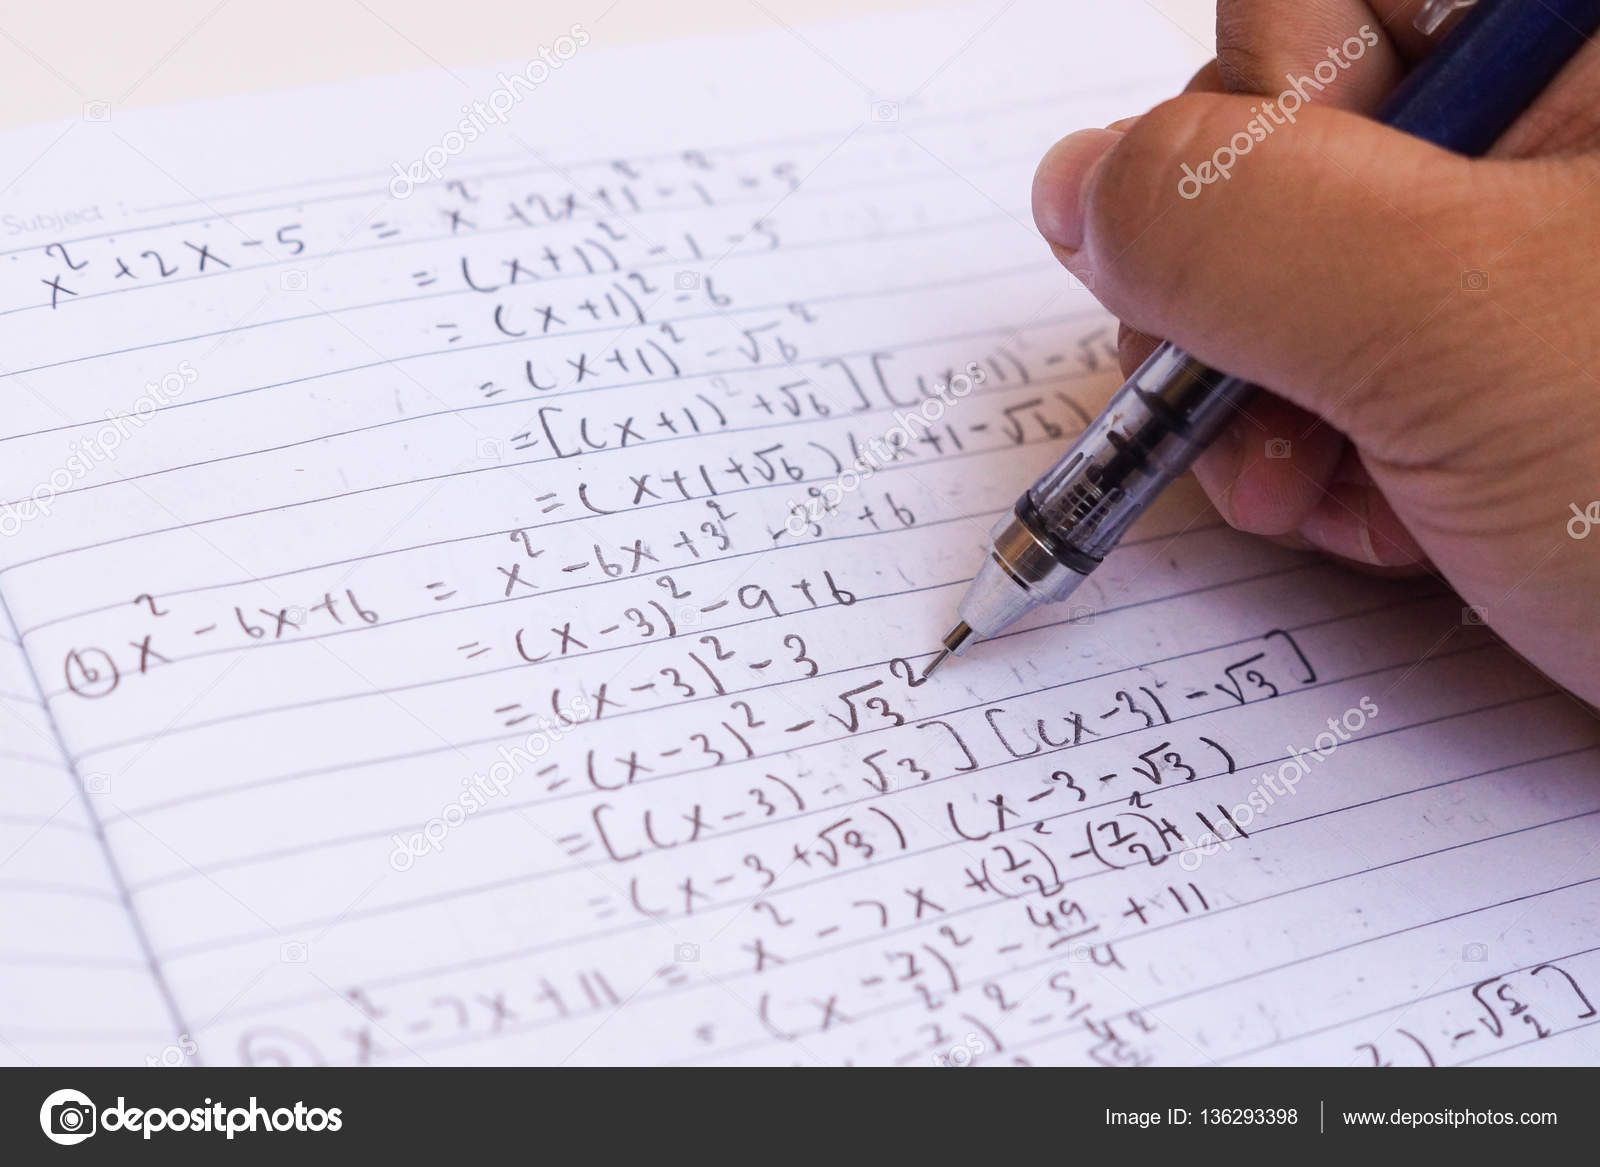 Subject :
x² + 2x - 5 = x² + 2x + 1² - 1² - 5
= (x+1)² - 1 - 5
= (x+1)² - 6
= (x+1)² - √6²
= [(x+1) + √6] [(x+1) - √6
= (x+1+√6) (x+1-√6)
(b) x² - 6x + 6 = x² - 6x + 3² - 3² + 6
= (x-3)² - 9 + 6
= (x-3)² - 3
= (x-3)² - √3²
= [(x-3) - √3] [(x-3) - √3]
= (x-3+√3) (x-3-√3)
x² - 7x + 11 = x² - 7x + (7/2)² - (7/2)² + 11
= (x - 7/2)² - 49/4 + 11
) - √5/2]
depositphotos
Image ID: 136293398
www.depositphotos.com